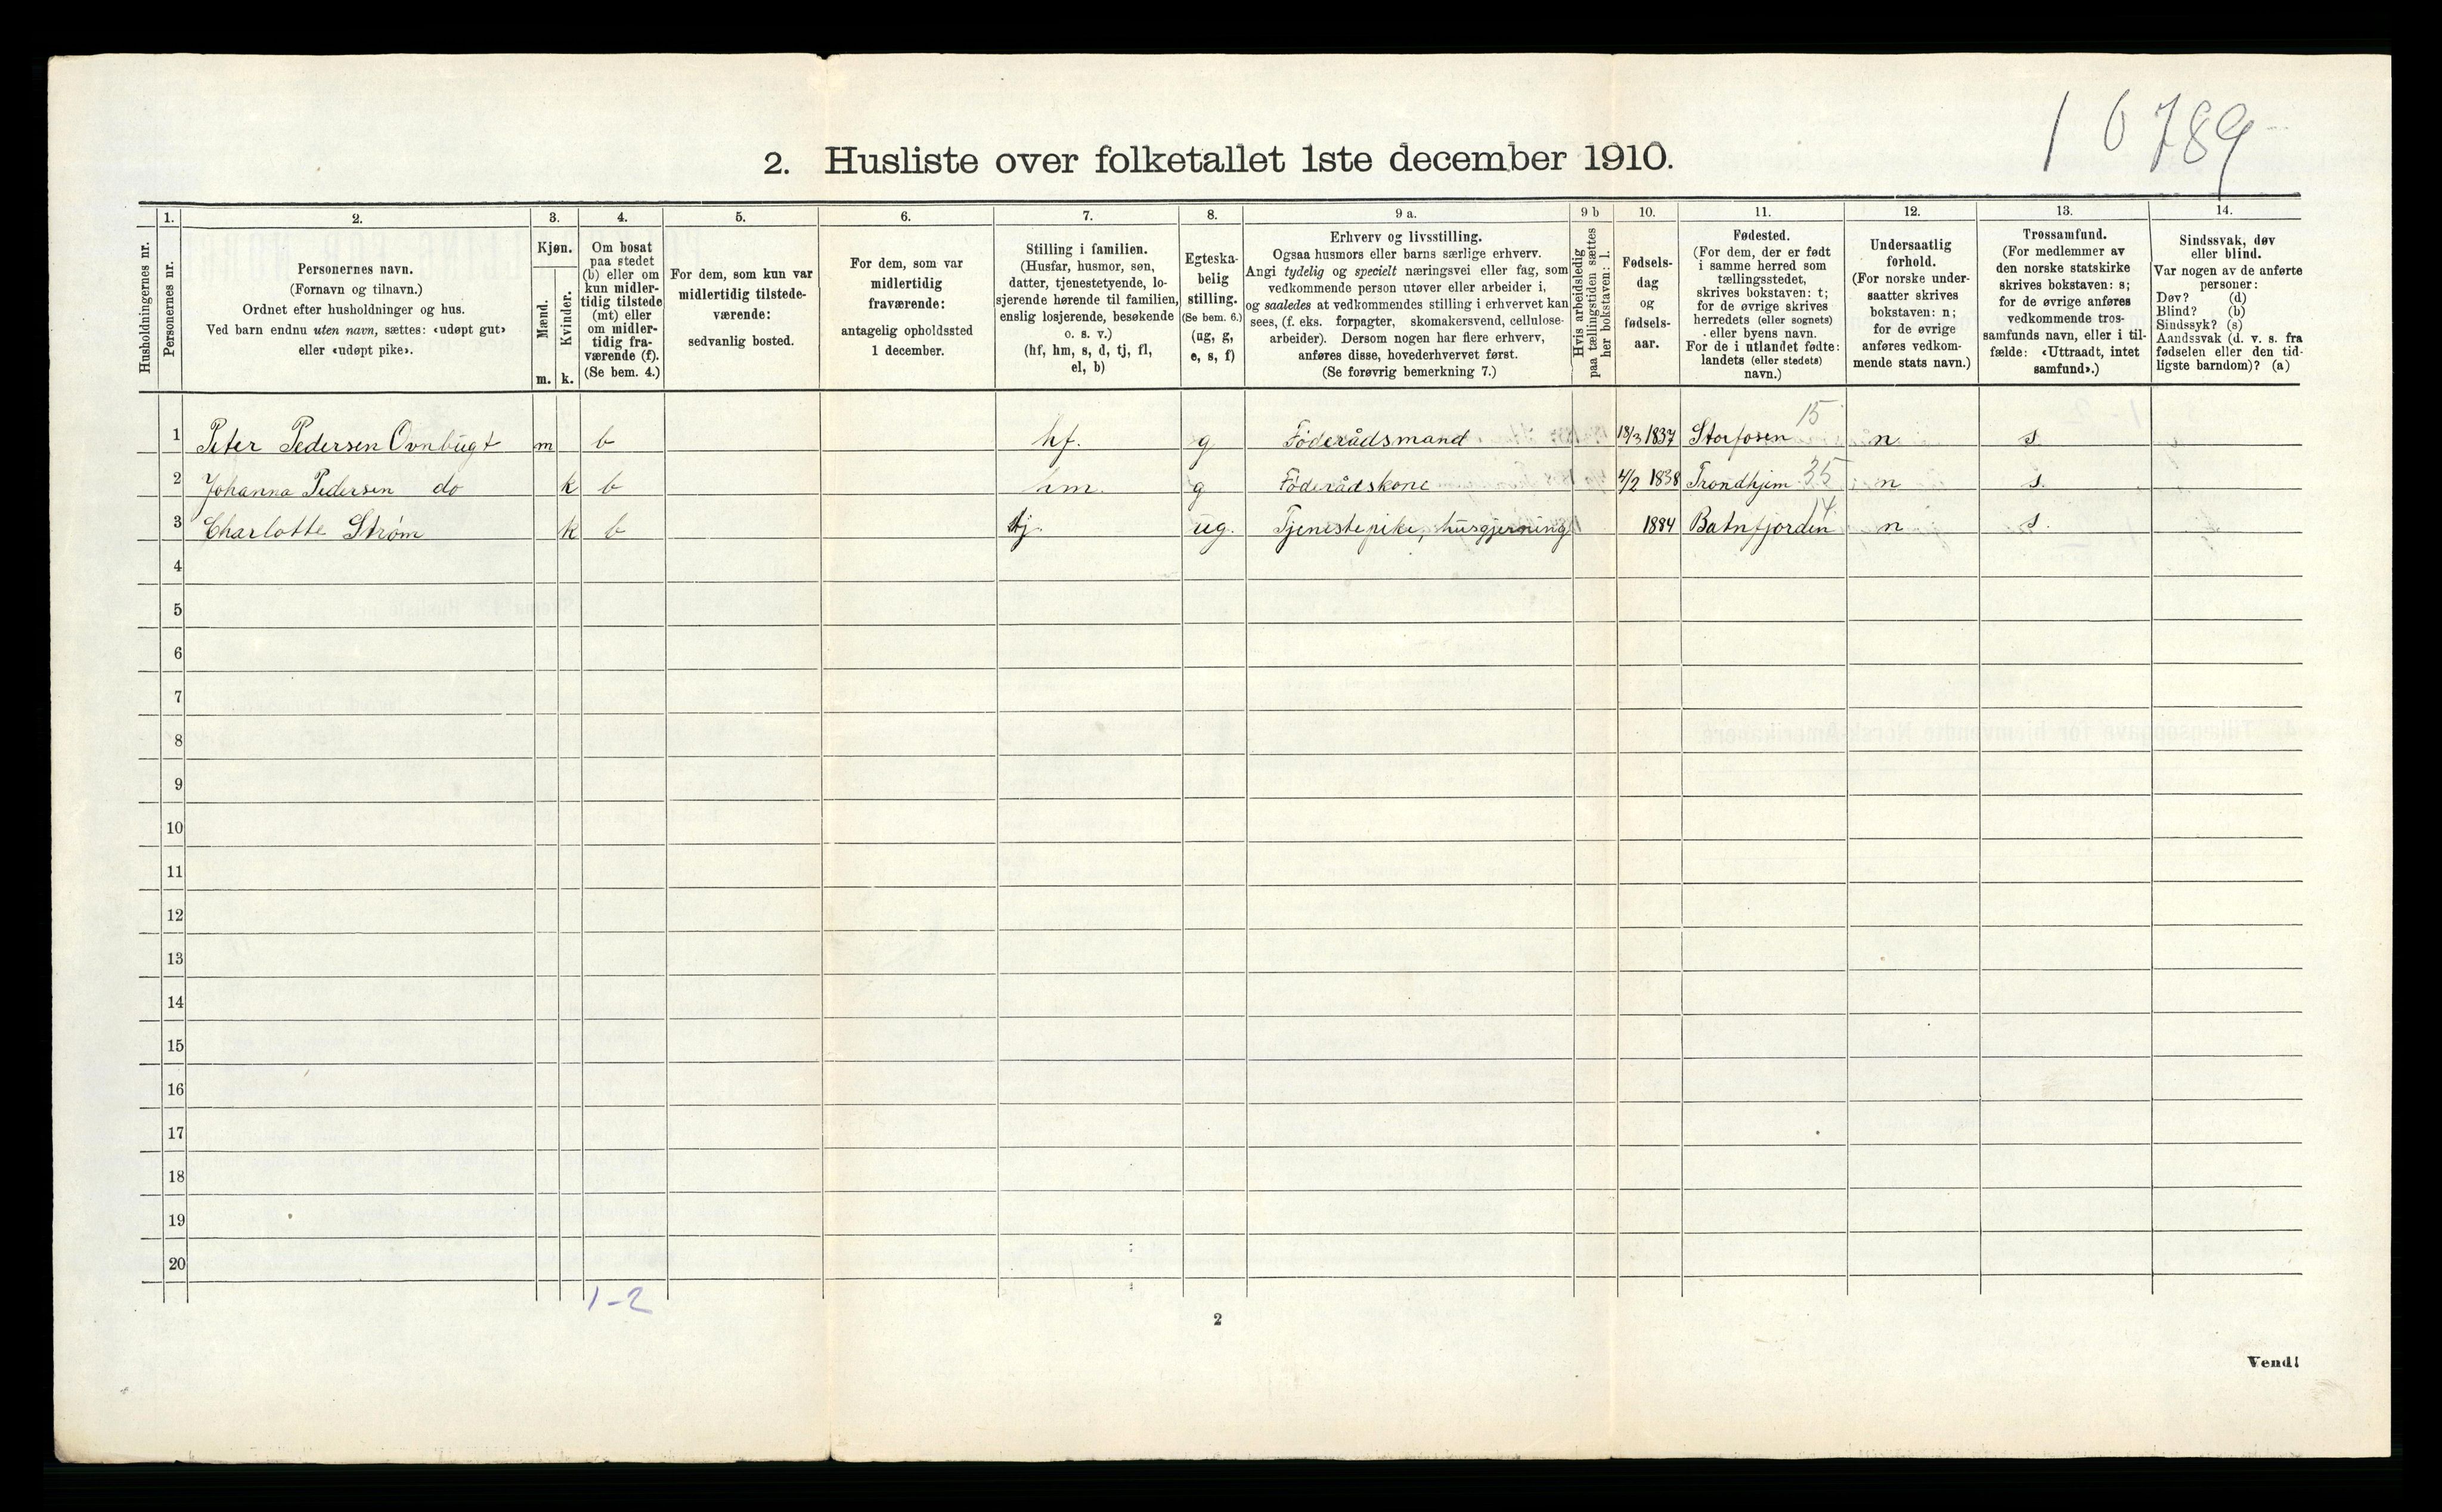 1 6 789
2. Husliste over folketallet 1ste december 1910.
1. 2. 3. 4. 5. 6. 7. 8. 9 a. 9 b 10. 11. 12. 13. 14.
Husholdningernes nr.
Personernes nr.
Personernes navn.
(Fornavn og tilnavn.)
Ordnet efter husholdninger og hus.
Ved barn endnu uten navn, sættes: «udøpt gut»
eller «udøpt pike».
Kjøn.
Mænd.
Kvinder.
m. k.
Om bosat
paa stedet
(b) eller om
kun midler-
tidig tilstede
(mt) eller
om midler-
tidig fra-
værende (f).
(Se bem. 4.)
For dem, som kun var
midlertidig tilstede-
værende:
sedvanlig bosted.
For dem, som var
midlertidig
fraværende:
antagelig opholdssted
1 december.
Stilling i familien.
(Husfar, husmor, søn,
datter, tjenestetyende, lo-
sjerende hørende til familien,
enslig losjerende, besøkende
o. s. v.)
(hf, hm, s, d, tj, fl,
el, b)
Egteska-
belig
stilling.
(Se bem. 6.)
(ug, g,
e, s, f)
Erhverv og livsstilling.
Ogsaa husmors eller barns særlige erhverv.
Angi tydelig og specielt næringsvei eller fag, som
vedkommende person utøver eller arbeider i,
og saaledes at vedkommendes stilling i erhvervet kan
sees, (f. eks. forpagter, skomakersvend, cellulose-
arbeider). Dersom nogen har flere erhverv,
anføres disse, hovederhvervet først.
(Se forøvrig bemerkning 7.)
Hvis arbeidsledig
paa tællingstiden sættes
her bokstaven: l.
Fødsels-
dag
og
fødsels-
aar.
Fødested.
(For dem, der er født
i samme herred som
tællingsstedet,
skrives bokstaven: t;
for de øvrige skrives
herredets (eller sognets)
eller byens navn.
For de i utlandet fødte:
landets (eller stedets)
navn.)
Undersaatlig
forhold.
(For norske under-
saatter skrives
bokstaven: n;
for de øvrige
anføres vedkom-
mende stats navn.)
Trossamfund.
(For medlemmer av
den norske statskirke
skrives bokstaven: s;
for de øvrige anføres
vedkommende tros-
samfunds navn, eller i til-
fælde: «Uttraadt, intet
samfund».)
Sindssvak, døv
eller blind.
Var nogen av de anførte
personer:
Døv? (d)
Blind? (b)
Sindssyk? (s)
Aandssvak (d. v. s. fra
fødselen eller den tid-
ligste barndom)? (a)
15
1 Peter Pedersen Ovnbugt m b hf. g Föderådsmand 18/3 1837 Storfosen n s.
2 Johanna Pedersen do k b hm. g Föderådskone 4/2 1838 Trondhjem 35 n s.
14
3 Charlotte Strøm k b tj. ug. Tjenestepike, husgjerning 1884 Batnfjorden n s.
4
5
6
7
8
9
10
11
12
13
14
15
16
17
18
19
20
1-2
2
Vend!